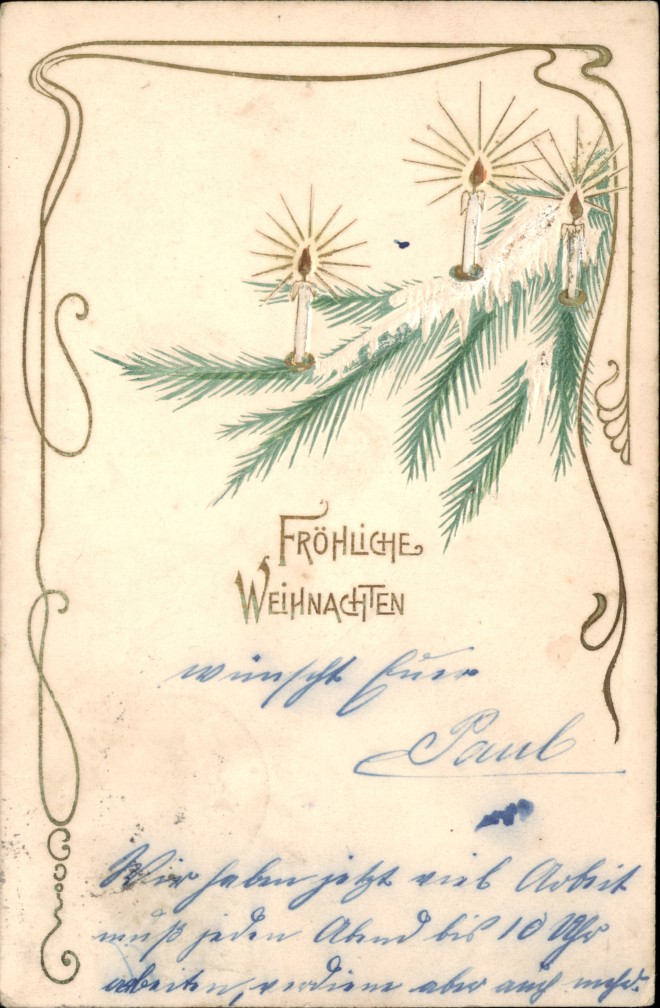 FRÖHLICHE
WEIHNACHTEN
wünscht Euer
Paul
Wir haben jetzt viel Arbeit
muß jeden Abend bis 10 Uhr
arbeiten, verdiene aber auch mehr.